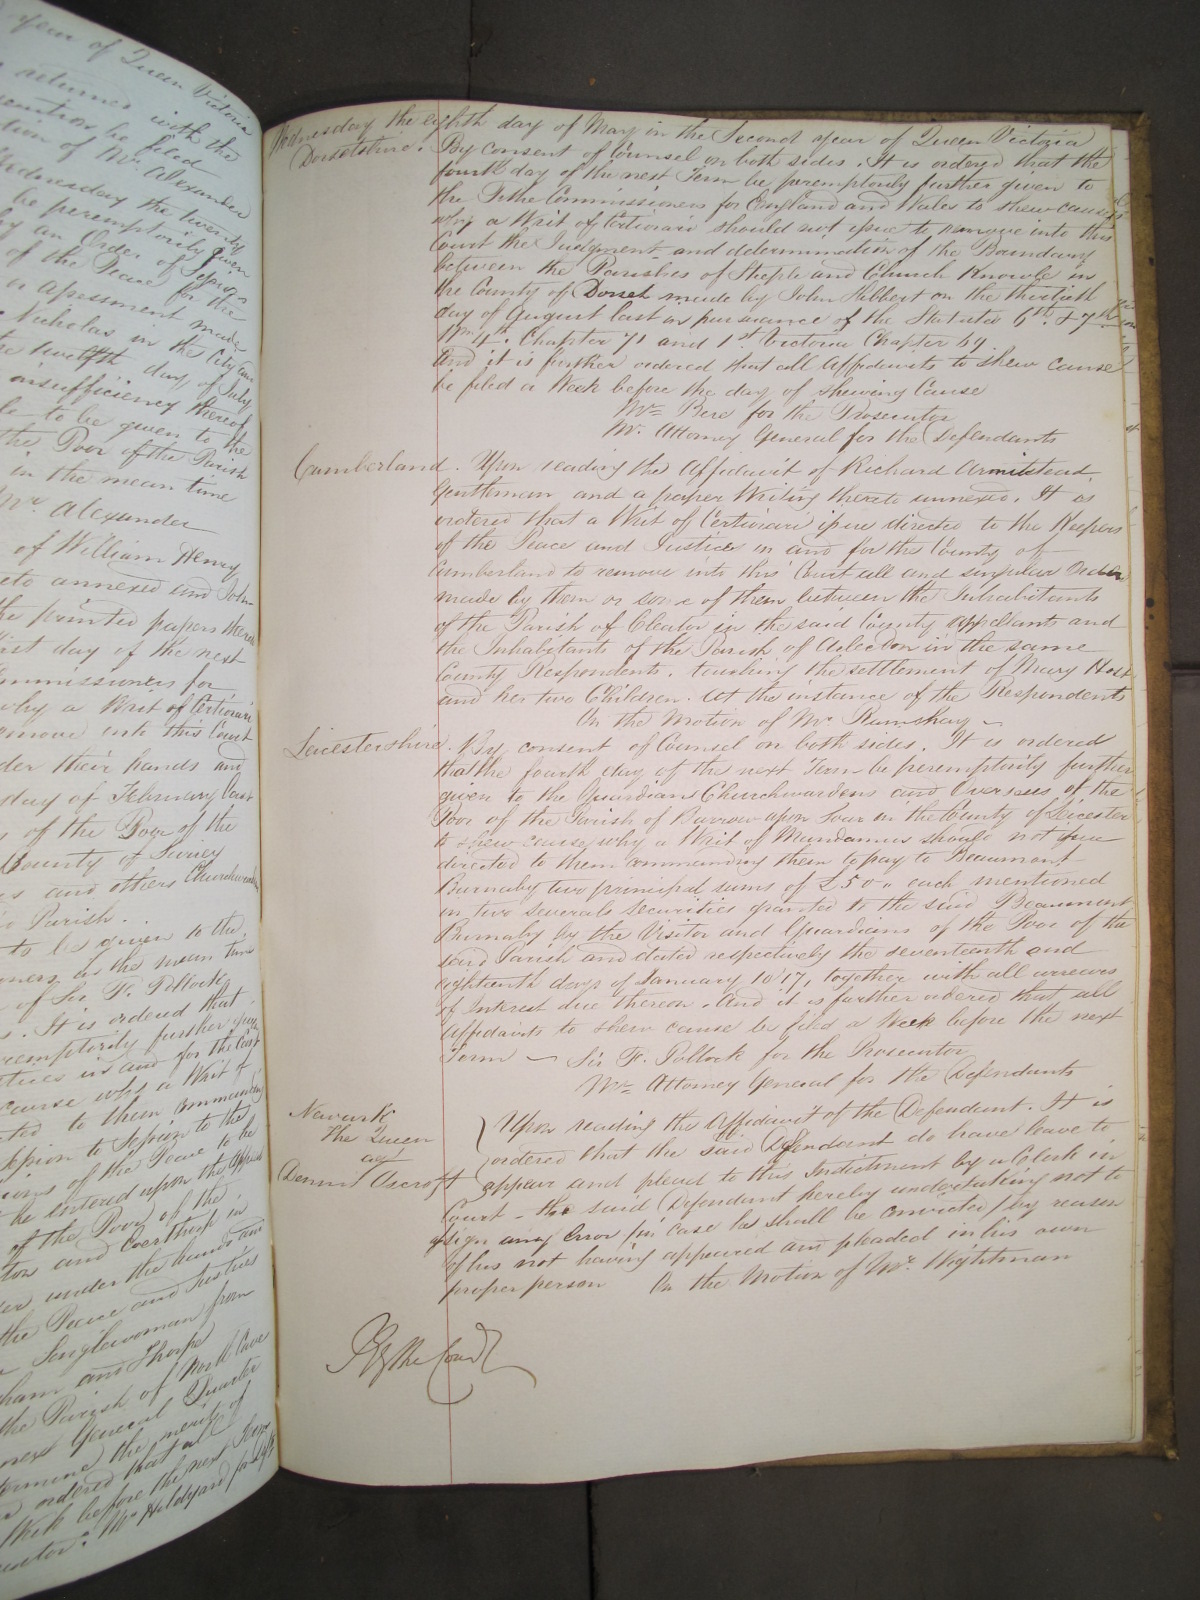 year of Queen Victoria
returned with the
be filed
tion of Mr. Alexander
Wednesday the twenty
be peremptorily given
by an Order of Session
of the Peace for the
or Assessment made
Nicholas in the City
twelfth day of July
insufficiency thereof
to be given to the
the Poor of the Parish
in the mean time
Mr. Alexander
of William Henry
annexed and John
the printed papers there
first day of the next
Commissioners for
why a Writ of Certiorari
remove into this Court
under their hands and
day of February last
of the Poor of the
County of Surrey
and others Churchwardens
Parish.
to be given to the
in the mean time
of Sir F. Pollock
It is ordered that
peremptorily further given
in and for the
cause why a Writ of
to them commanding
Session to Session to the
of the Peace to be
be entered upon the Appeal
of the Poor of the
and in
under the hands and
the Peace and Justices
Singlewoman from
and Thorpe
the Parish of North Cave
next General Quarter
determine the merits of
ordered that all
Week before the next Term
Mr. Hildyard for
Wednesday the eighth day of May in the Second Year of Queen Victoria
Dorsetshire. By consent of Counsel on both sides. It is ordered that the
fourth day of the next Term be peremptorily further given to
the Tithe Commissioners for England and Wales to shew cause
why a Writ of Certiorari should not issue to remove into this
Court the Judgment and determination of the Boundary
between the Parishes of Steeple and Church Knowle in
the County of Dorset made by John Hibbert on the thirtieth
day of August last in pursuance of the Statutes 6th. & 7th.
Wm. 4th. Chapter 71 and 1st Victoria Chapter 69
And it is further ordered that all Affidavits to shew cause
be filed a Week before the day of shewing Cause
Mr. Bere for the Prosecutor
Mr. Attorney General for the Defendants
Cumberland. Upon reading the Affidavit of Richard Armitstead
Gentleman and a paper Writing thereto annexed. It is
ordered that a Writ of Certiorari issue directed to the Keepers
of the Peace and Justices in and for the County of
Cumberland to remove into this Court all and singular Orders
made by them or some of them between the Inhabitants
of the Parish of Cleator in the said County Appellants and
the Inhabitants of the Parish of Arlecdon in the same
County Respondents. touching the settlement of Mary Host
and her two Children. At the instance of the Respondents
On the Motion of Mr. Ramshay
Leicestershire. By consent of Counsel on both sides. It is ordered
that the fourth day of the next Term be peremptorily further
given to the Guardians Churchwardens and Overseers of the
Poor of the Parish of Barrow upon Soar in the County of Leicester
to shew cause why a Writ of Mandamus should not issue
directed to them commanding them to pay to Beaumont
Burnaby two principal sums of £50,, each mentioned
in two several securities granted to the said Beaumont
Burnaby by the Visitor and Guardians of the Poor of the
said Parish and dated respectively the seventeenth and
eighteenth days of January 1817, together with all arrears
of Interest due thereon. And it is further ordered that all
Affidavits to shew cause be filed a Week before the next
Term Sir F. Pollock for the Prosecutor
Mr. Attorney General for the Defendants
Newark
The Queen
agt
Dennis Ascroft
Upon reading the Affidavit of the Defendant. It is
ordered that the said Defendant do have leave to
appear and plead to this Indictment by a Clerk in
Court - the said Defendant hereby undertaking not to
assign any Error (in case he shall be convicted) by reason
of his not having appeared and pleaded in his own
proper person On the Motion of Mr. Wightman
By the Court